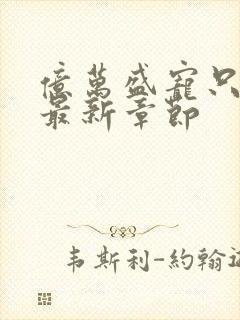 億萬盛寵只
最新章節
韦斯利-約翰遜